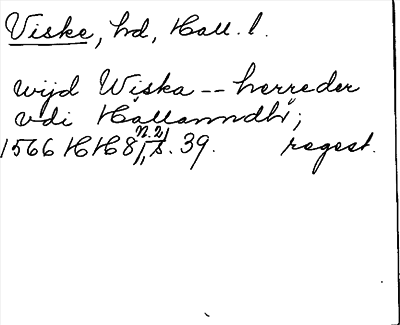 Viske, hd, Hall. l.
wijd Wiska -- herreder
vdi Hallanndh;
1566 HH 8/1, n. 21 s. 39. regest.